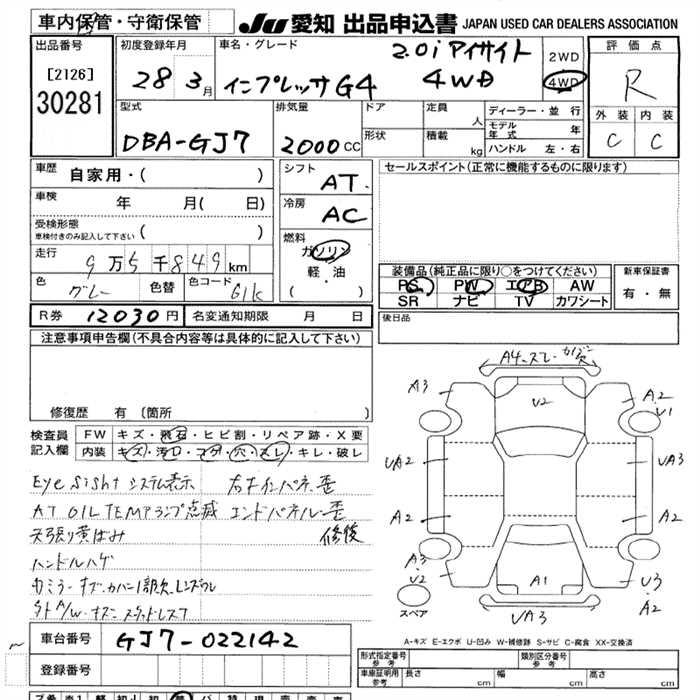 車内保管・守衛保管
JU 愛知 出品申込書 JAPAN USED CAR DEALERS ASSOCIATION
出品番号
[2126]
30281
初度登録年月
28 3月
車名・グレード
2.0i アイサイト
インプレッサG4 4WD
2WD
4WD
評価点
R
外装 内装
C C
型式
DBA-GJ7
排気量
2000CC
ドア
形状
定員 人
積載 kg
ディーラー・並行
モデル年式 年
ハンドル 左・右
車歴 自家用・( )
車検 年 月( 日)
受検形態
車検付きのみ記入して下さい ( )
走行 9万5千849km
色 グレー 色替 色コード 61k
シフト AT.
冷房 AC
燃料 ガソリン
軽・油
( )
セールスポイント(正常に機能するものに限ります)
装備品(純正品に限り○をつけてください)
PS PW エアB AW
SR ナビ TV カワシート
新車保証書
有・無
R券 12030円 名変通知期限 月 日
後日品
注意事項申告欄(不具合内容等は具体的に記入して下さい)
修復歴 有(箇所
検査員記入欄
FW キズ・飛石・ヒビ割・リペア跡・X要
内装 キズ・汚れ・コゲ・穴・スレ・キレ・破レ
Eye Sight システム表示 右ナインパネ歪
AT OIL TEMPランプ点滅 エンドパネル歪
天張り黄ばみ 修復
ハンドルハゲ
A4
A3
V2
A2
V1
UA2
UA3
A2
A2
A3
V2
A1
V3
A2
UA3
スペア
A-キズ E-エクボ U-凹み W-補修跡 S-サビ C-腐食 XX-交換済
車台番号 GJ7-022142
登録番号
形式指定番号 参考
類別区分番号 参考
車庫証明用 参考 長さ cm 幅 cm 高さ cm